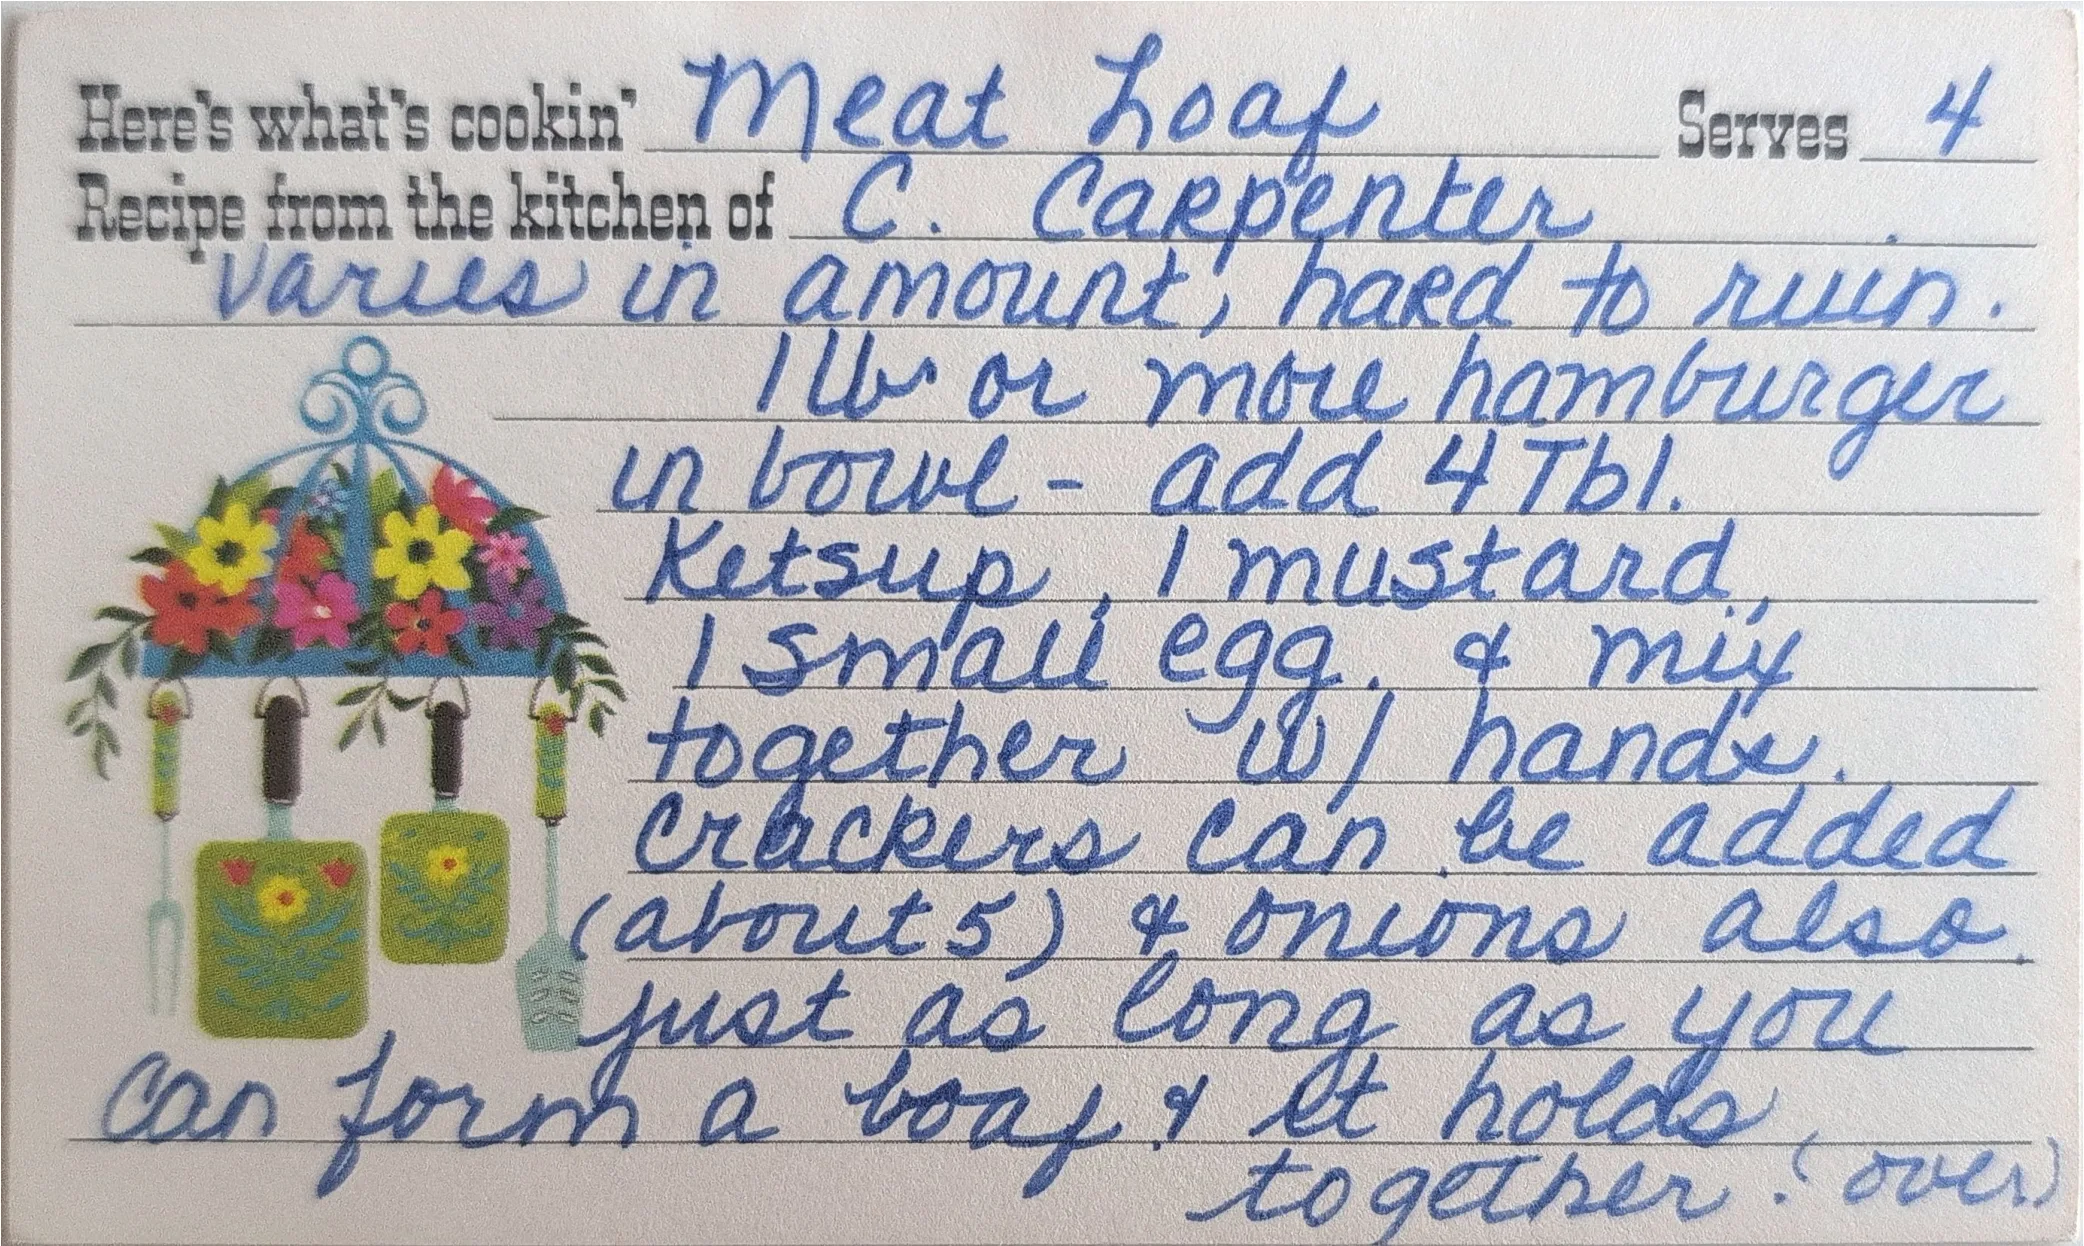 Here's what's cookin' Meat Loaf Serves 4
Recipe from the kitchen of C. Carpenter
Varies in amount, hard to ruin.
1 lb or more hamburger
in bowl - add 4 Tbl.
Ketsup, 1 mustard,
1 small egg, & mix
together w/ hands.
Crackers can be added
(about 5) & onions also.
just as long as you
can form a loaf & it holds
together. (over)